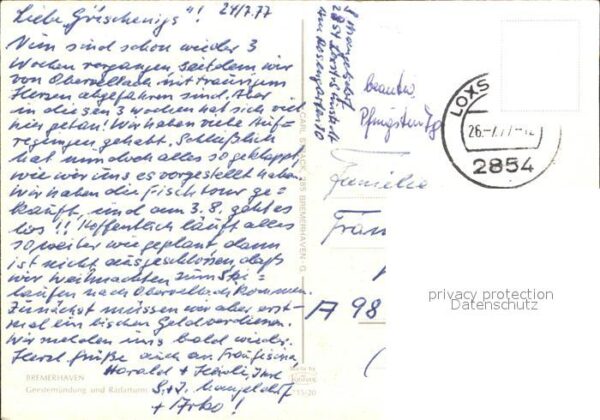 24/7.77
Liebe "Gröschenigs"!
Nun sind schon wieder 3
Wochen vergangen seitdem wir
von Obervellach mit traurigem
Herzen abgefahren sind. Aber
in diesen 3 Wochen hat sich viel
hier getan! Wir haben viele Auf-
regungen gehabt. Schließlich
hat nun doch alles so geklappt
wie wir uns es vorgestellt haben
Wir haben die Fischtour ge-
kauft, und am 3.8. geht es
los!! Hoffentlich läuft alles
so weiter wie geplant, dann
ist nicht ausgeschlossen, daß
wir Weihnachten zum Ski-
laufen nach Obervellach kommen.
Zunächst müssen wir aber erst-
mal ein bischen Geld verdienen.
Wir melden uns bald wieder.
Herzl. Grüße auch an
Harald +
S. + J.
+ Arko!
BREMERHAVEN
Geestemündung und Radarturm
CARL 285 BREMERHAVEN-G.
2854
Familie
A 98
LOXS
26.-7.77-12
2854
privacy protection
Datenschutz